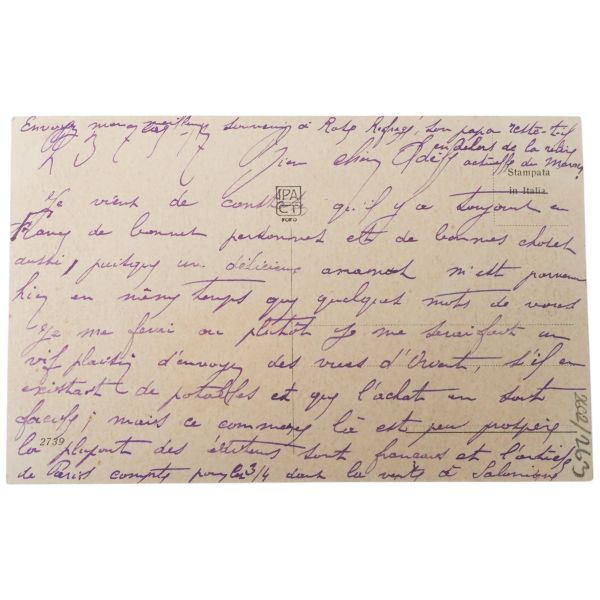 Envoyez moi mes meilleurs souvenirs à son papa reste-t-il
en dehors de la crise
2 3 7 - 17 Mon cher actuelle du Maroc
Stampata
in Italia
Je viens de qu'il y a toujours en
France de bonnes personnes et de bonnes choses
aussi, puisque un délicieux ananas m'est parvenu
hier en même temps que quelques mots de vous
Je me ferai ou plutôt je me serai fait un
vif plaisir d'envoyer des vues d'Orient, s'il en
existait de potables et que l'achat en soit
facile; mais ce commerce là est peu prospère
2739
la plupart des éditeurs sont français et l'article
de Paris compte pour les 3/4 dans la vente à Salonique